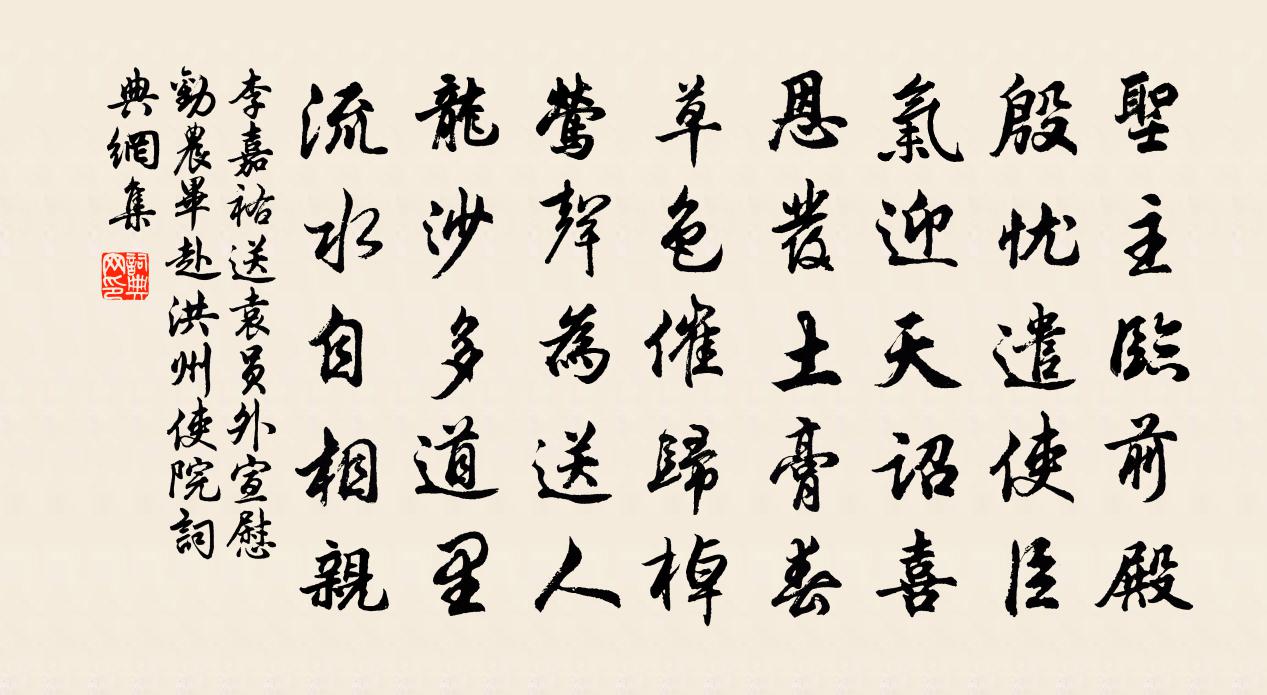 聖主臨前殿
殷忧遣使臣
氣迎天詔喜
恩發土膏春
草色催歸棹
鶯聲為送人
龍沙多道里
流水自相親
李嘉裕送袁員外宣慰
勸農畢赴洪州使院詞
典網集
詞典网印